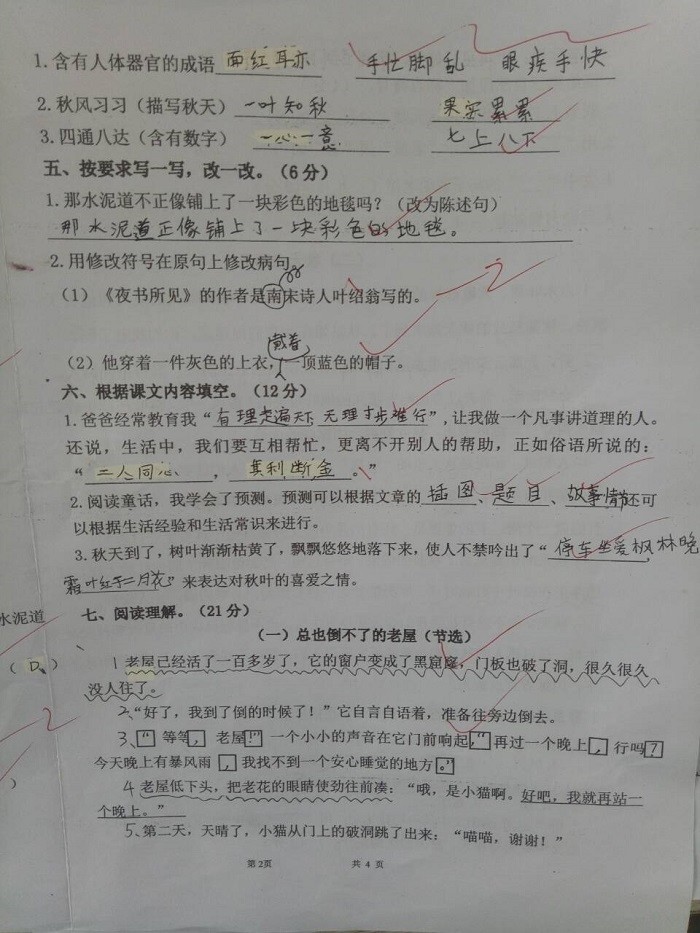 1.含有人体器官的成语 面红耳赤 手忙脚乱 眼疾手快
2.秋风习习（描写秋天）一叶知秋 果实累累
3.四通八达（含有数字） 一心一意 七上八下
五、按要求写一写，改一改。（6分）
1.那水泥道不正像铺上了一块彩色的地毯吗？（改为陈述句）
那水泥道正像铺上了一块彩色的地毯。
2.用修改符号在原句上修改病句。
（1）《夜书所见》的作者是南宋诗人叶绍翁写的。
-2
戴着
（2）他穿着一件灰色的上衣，一顶蓝色的帽子。
六、根据课文内容填空。（12分）
1.爸爸经常教育我“有理走遍天下 无理寸步难行”，让我做一个凡事讲道理的人。
还说，生活中，我们要互相帮忙，更离不开别人的帮助，正如俗语所说的：
“二人同心，其利断金。”
2.阅读童话，我学会了预测。预测可以根据文章的插图、题目、故事情节还可
以根据生活经验和生活常识来进行。
3.秋天到了，树叶渐渐枯黄了，飘飘悠悠地落下来，使人不禁吟出了“停车坐爱枫林晚，
霜叶红于二月花”来表达对秋叶的喜爱之情。
水泥道
七、阅读理解。（21分）
（一）总也倒不了的老屋（节选）
（D）
1老屋已经活了一百多岁了，它的窗户变成了黑窟窿，门板也破了洞，很久很久
没人住了。
2、“好了，我到了倒的时候了！”它自言自语着，准备往旁边倒去。
-2
3、“等等，老屋！”一个小小的声音在它门前响起，“再过一个晚上，行吗？
今天晚上有暴风雨，我找不到一个安心睡觉的地方。”
）
4老屋低下头，把老花的眼睛使劲往前凑：“哦，是小猫啊。好吧，我就再站一
个晚上。”
5、第二天，天晴了，小猫从门上的破洞跳了出来：“喵喵，谢谢！”
第2页 共 4 页